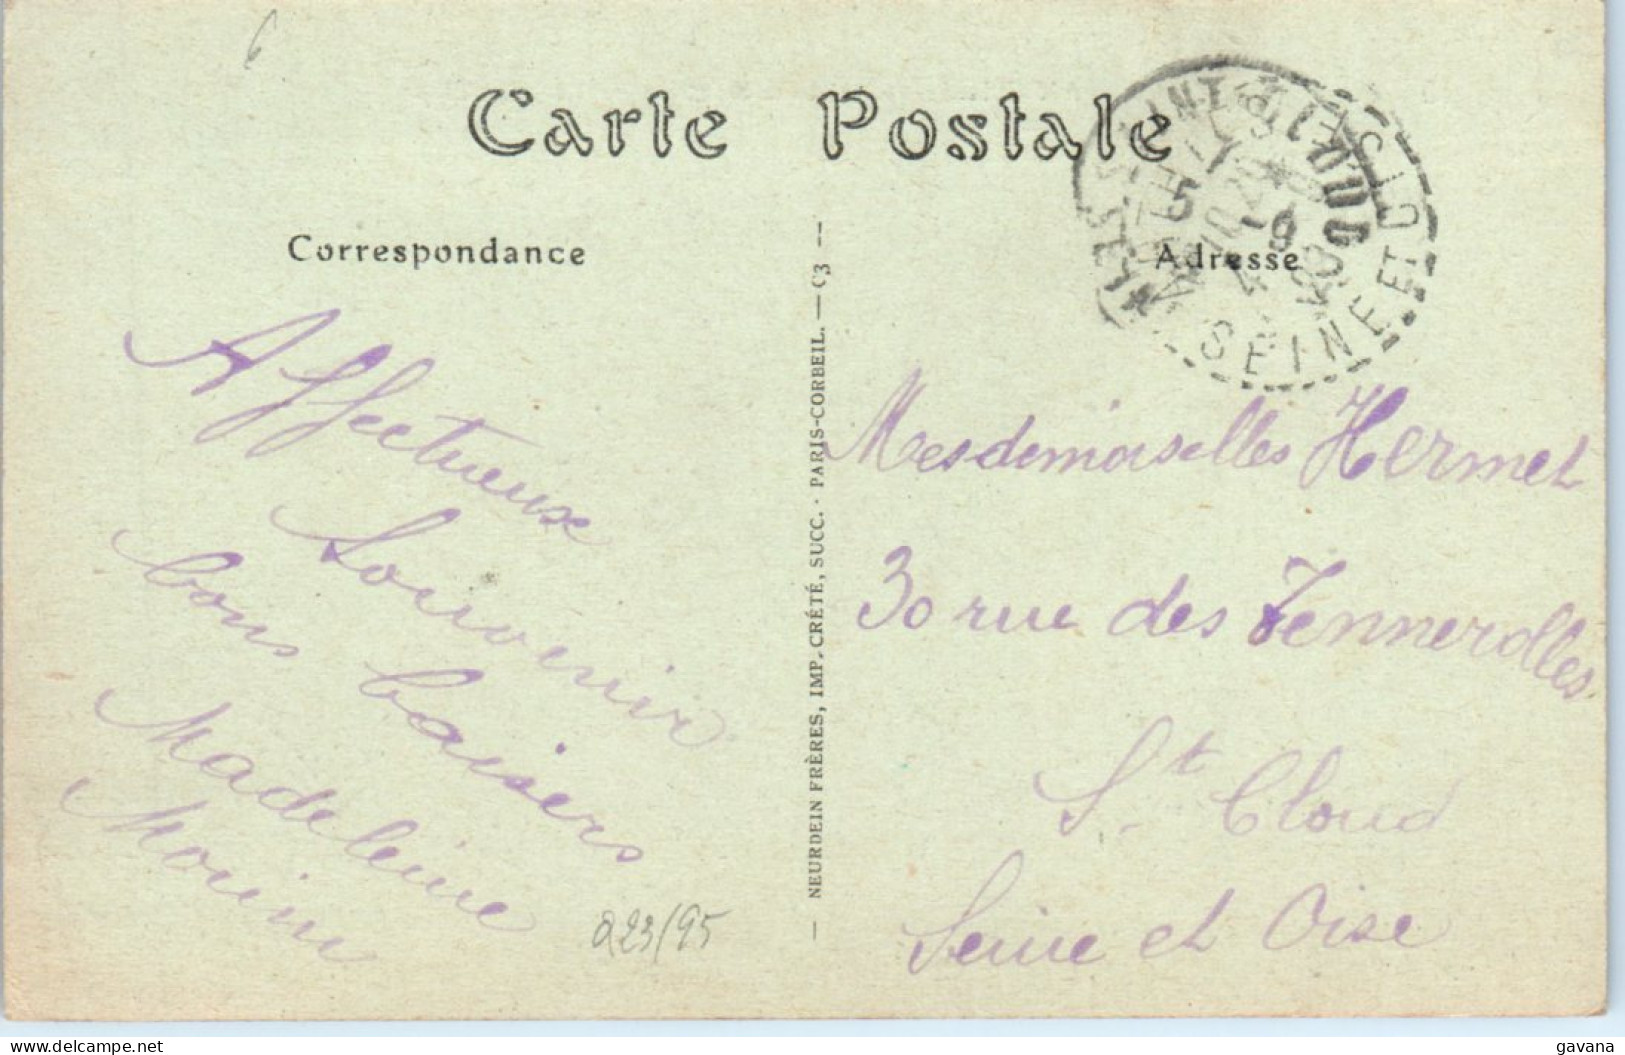 6
Carte Postale
Correspondance
Adresse
SEINE ET OISE
Affectueux
Souvenir
bons baisers
Madeleine
Morin
NEURDEIN FRÈRES, IMP. CRÉTÉ, SUCC. · PARIS-CORBEIL. — C3 --
Mesdemoiselles Hermet
30 rue des Tennerolles
St Cloud
Seine et Oise
223/95
delcampe.net
gavana